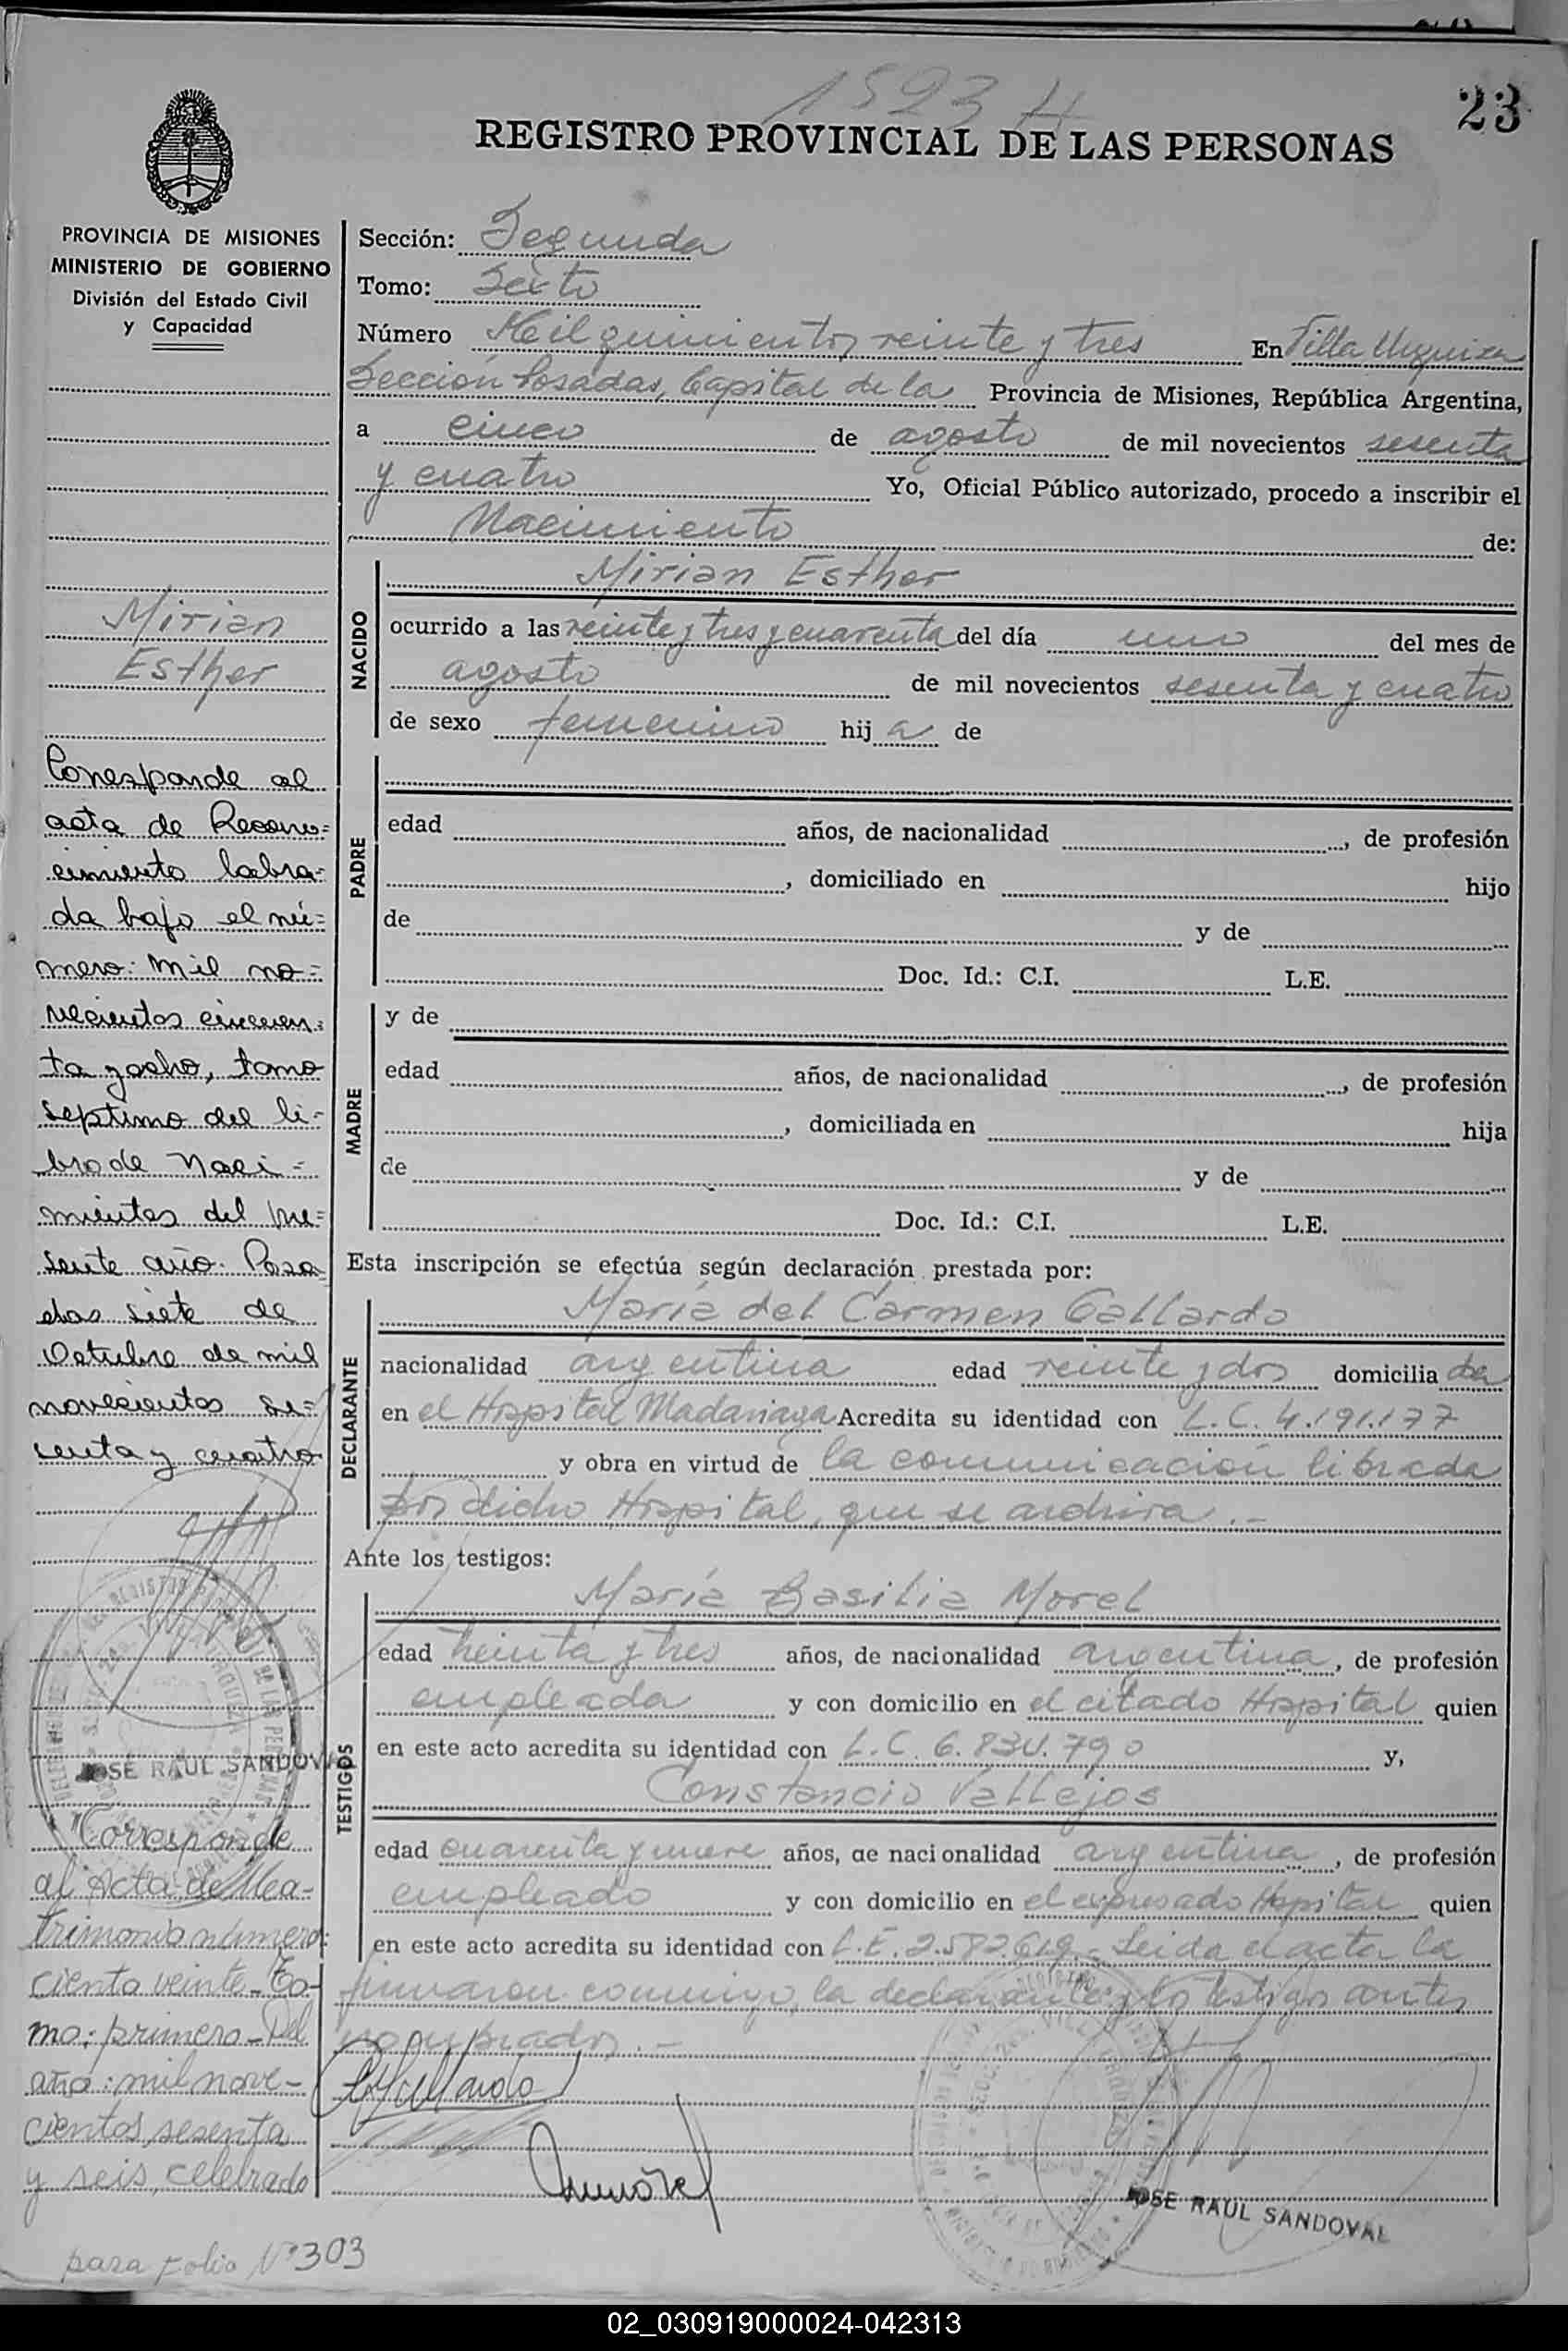 1523 H
23
REGISTRO PROVINCIAL DE LAS PERSONAS
PROVINCIA DE MISIONES
MINISTERIO DE GOBIERNO
División del Estado Civil
y Capacidad
Sección: Segunda
Tomo: Sexto
Número Mil quinientos veinte y tres En Villa Urquiza
Sección Posadas, Capital de la Provincia de Misiones, República Argentina,
a cinco de agosto de mil novecientos sesenta
y cuatro Yo, Oficial Público autorizado, procedo a inscribir el
Nacimiento de:
NACIDO
Mirian Esther
ocurrido a las veinte y tres y cuarenta del día uno del mes de
agosto de mil novecientos sesenta y cuatro
de sexo femenino hij a de
PADRE
edad años, de nacionalidad , de profesión
, domiciliado en hijo
de y de
Doc. Id.: C.I. L.E.
MADRE
y de
edad años, de nacionalidad , de profesión
, domiciliada en hija
de y de
Doc. Id.: C.I. L.E.
Esta inscripción se efectúa según declaración prestada por:
DECLARANTE
María del Carmen Gallardo
nacionalidad argentina edad veinte y dos domicilia da
en el Hospital Madariaga Acredita su identidad con L.C. 4.191.177
y obra en virtud de la comunicación librada
por dicho Hospital, que se archiva .-
Ante los testigos:
TESTIGOS
María Basilia Morel
edad treinta y tres años, de nacionalidad argentina, de profesión
empleada y con domicilio en el citado Hospital quien
en este acto acredita su identidad con L.C. 6.830.790 y,
Constancio Vallejos
edad cuarenta y nueve años, de nacionalidad argentina, de profesión
empleado y con domicilio en el expresado Hospital quien
en este acto acredita su identidad con L.E. 2.582.619 - Leida el acta la
firmaron conmigo, la declarante y los testigos antes
nombrados .-
JOSE RAUL SANDOVAL
Mirian
Esther
Corresponde al
acta de Recono=
cimiento labra=
da bajo el nú=
mero: mil no=
vecientos cincuen=
ta y ocho, tomo
septimo del li=
bro de Naci=
mientos del pre=
sente año. Posa=
das siete de
Octubre de mil
novecientos se=
senta y cuatro
JOSE RAUL SANDOVAL
"Corresponde
al Acta de Ma-
trimonio número:
ciento veinte-To-
mo: primero-Del
año: mil nove-
cientos sesenta
y seis, celebrado
para Folio Nº 303
02_030919000024-042313